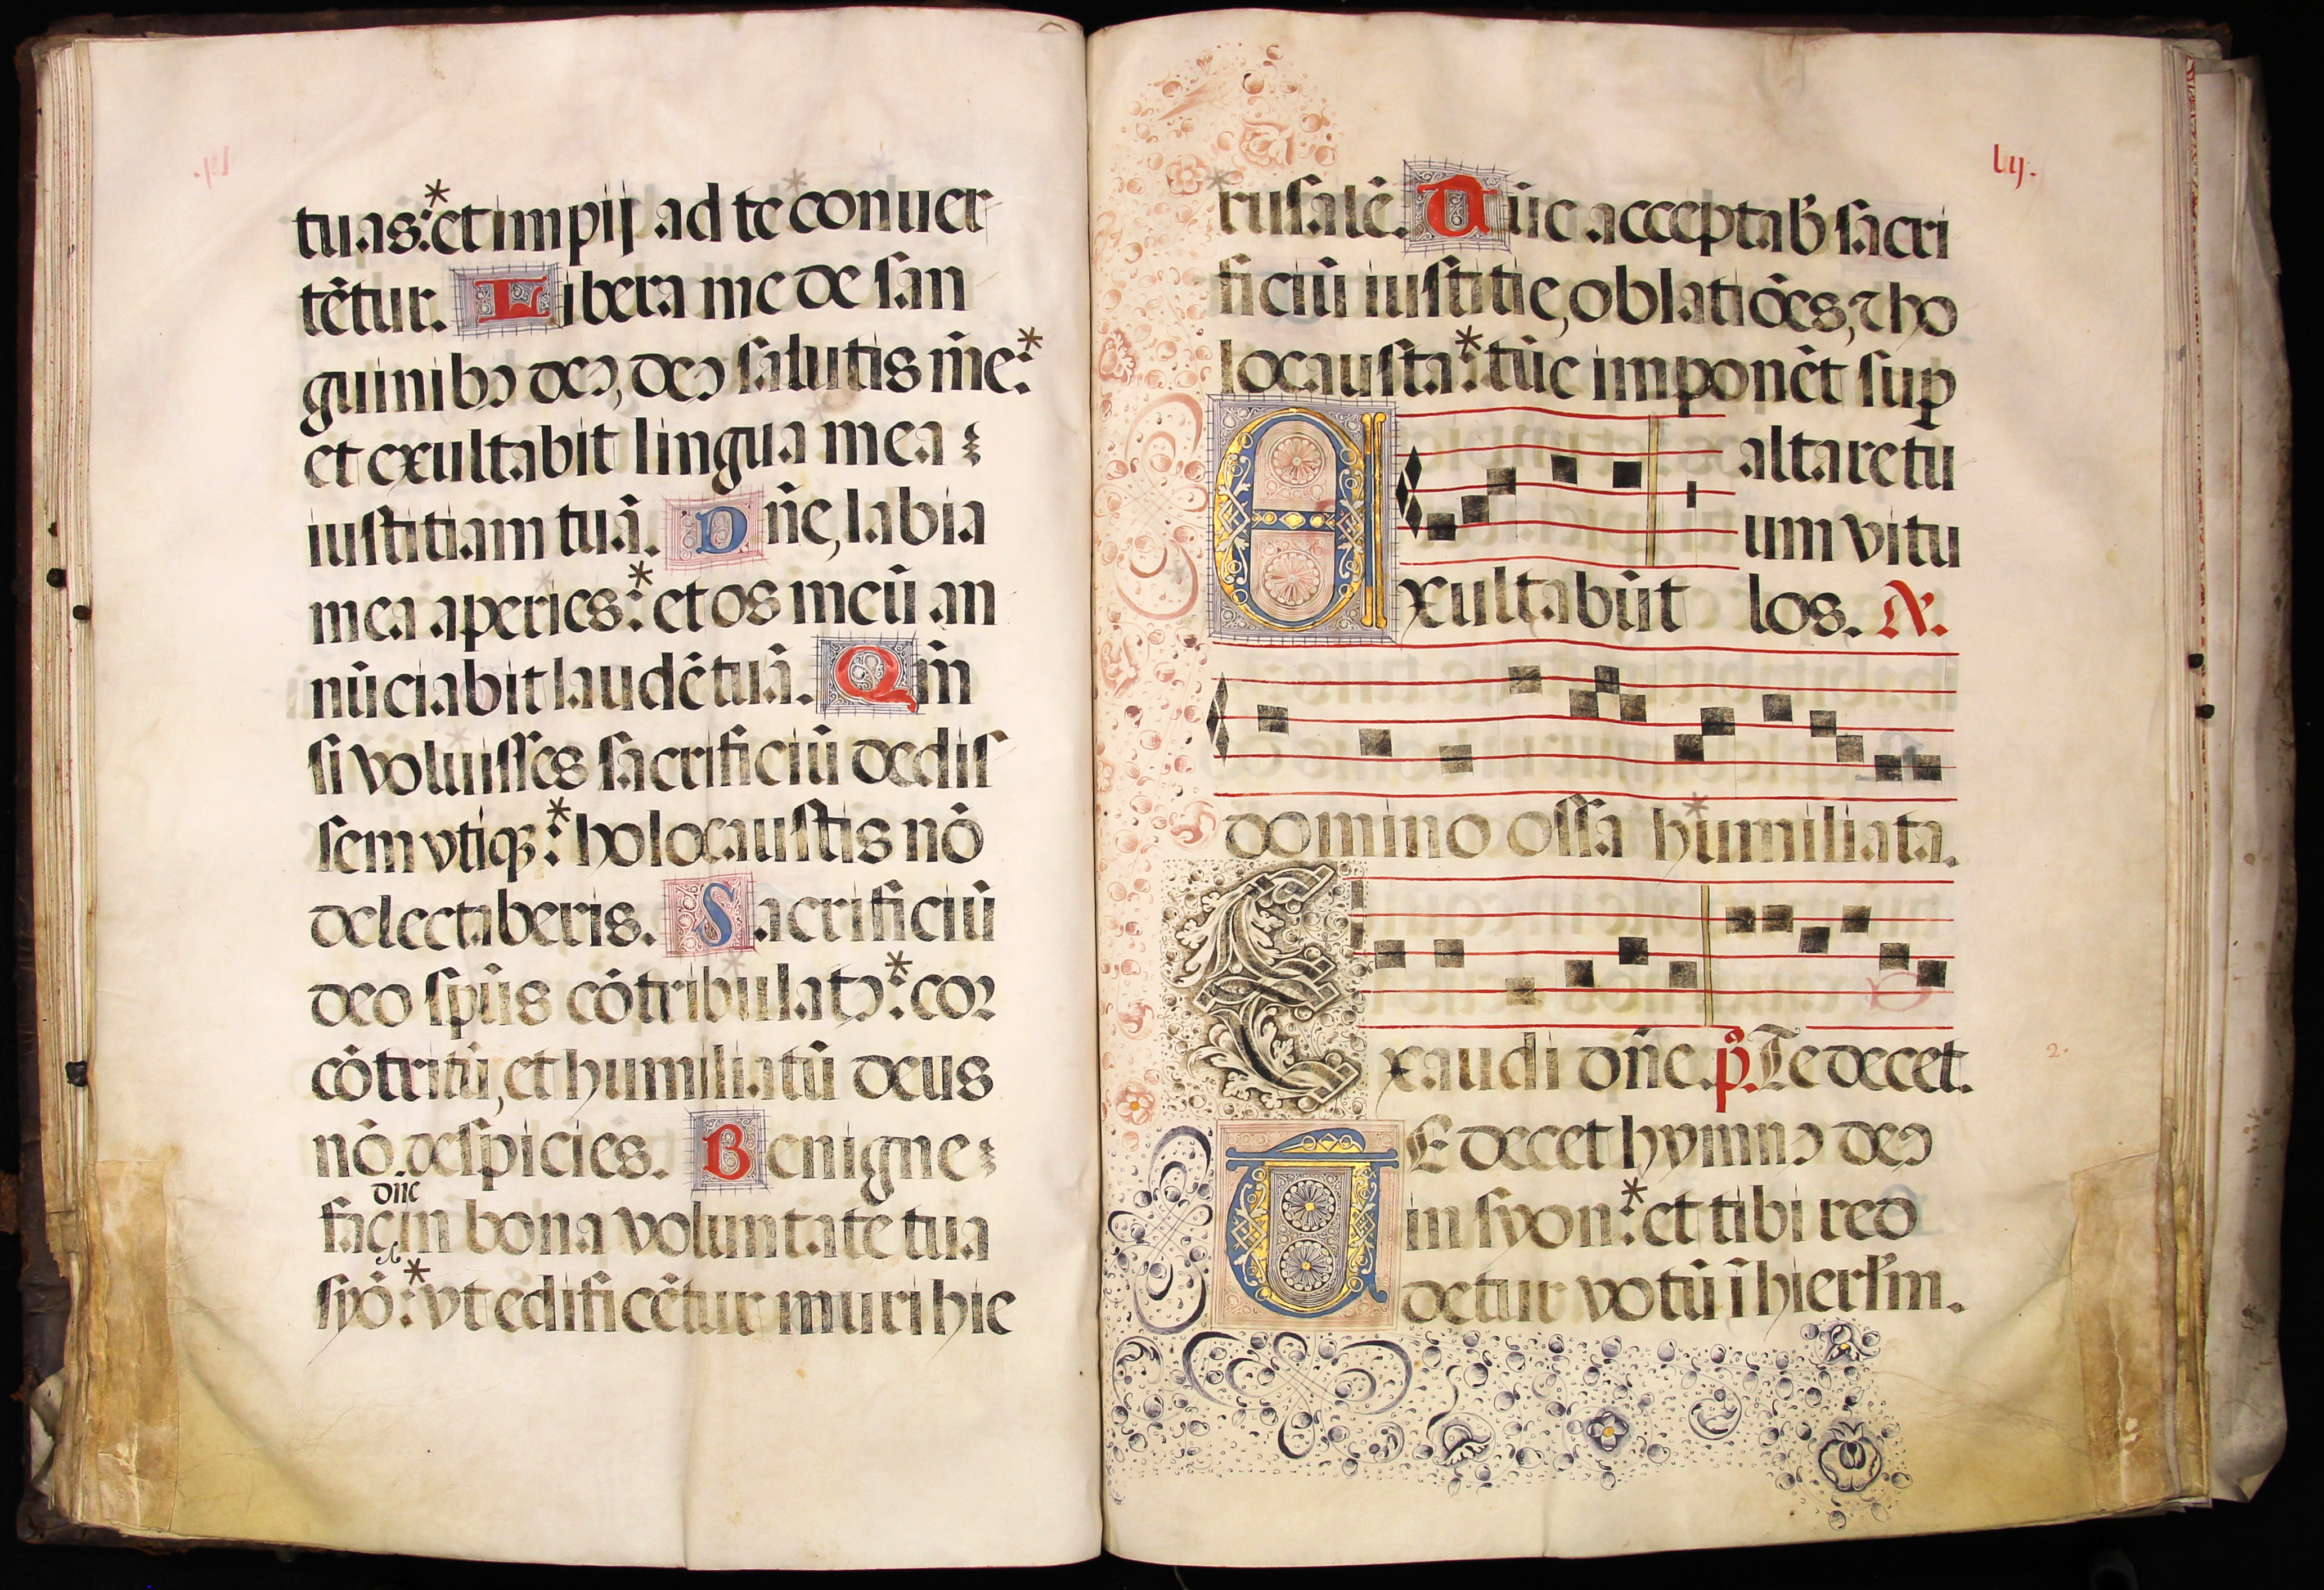 tuas:*et impij ad te conuer
tētur. Libera me de san
guinibꝰ deꝰ, deꝰ salutis m̄e:*
et exultabit lingua mea
iustitiam tuā. Dn̄e, labia
mea aperies:*et os meū an
nūciabit laudē tuā. Qm̄
si voluisses sacrificiū dedis
sem vtiqꝫ:*holocaustis nō
delectaberis. Sacrificiū
deo spūs cōtribulatꝰ:*cor
cōtritū, et humiliatū deus
nō despicies. Benigne
dn̄e
fac in bona voluntate tua
syō:*vt edificētur muri hie
lij.
rusalē. Tūc acceptab̄ sacri
ficiū iustitie, oblatiōes, ⁊ ho
locausta:*tūc imponēt suꝑ
altare tu
um vitu
Exultabūt los. A.
domino ossa humiliata.
Exaudi dn̄e. p̄. Te decet.
2.
TE decet hymnꝰ deꝰ
in syon:*et tibi red
detur votū ī hierlm̄.